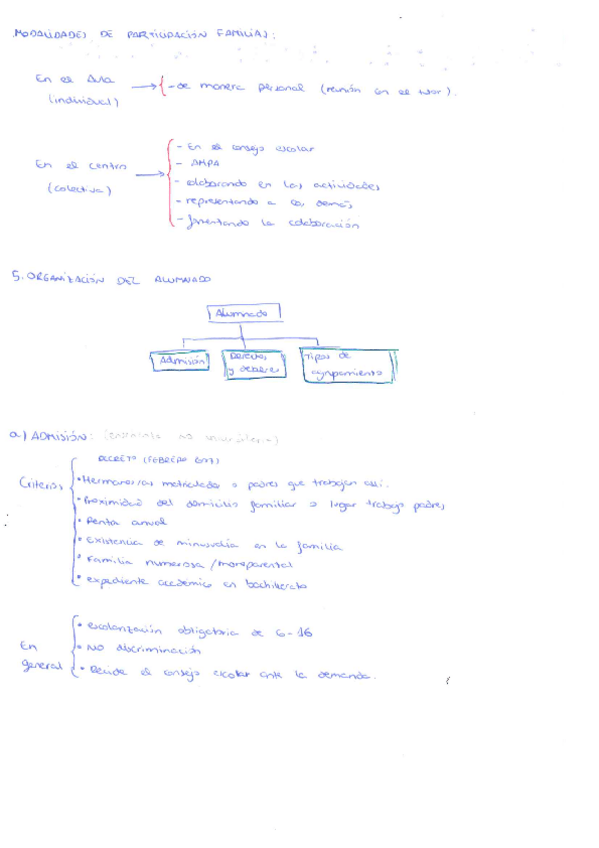 MODALIDADES DE PARTICIPACIÓN FAMILIAS:
En el Aula
(individual)
- de manera personal (reunión con el tutor).
En el centro
(colectiva)
- En el consejo escolar
- AMPA
- colaborando en las actividades
- representando a los demás
- fomentando la colaboración
5. ORGANIZACIÓN DEL ALUMNADO
Alumnado
Admisión
Derechos
y deberes
Tipos de
agrupamiento
a) ADMISIÓN: (enseñanza no universitaria)
DECRETO (FEBRERO 2007)
Criterios
• Hermanos/as matriculados o padres que trabajen allí.
• Proximidad del domicilio familiar o lugar trabajo padres
• Renta anual
• Existencia de minusvalía en la familia
• Familia numerosa / monoparental
• expediente académico en bachillerato
En
general
• escolarización obligatoria de 6-16
• NO discriminación
• Decide el consejo escolar ante la demanda.